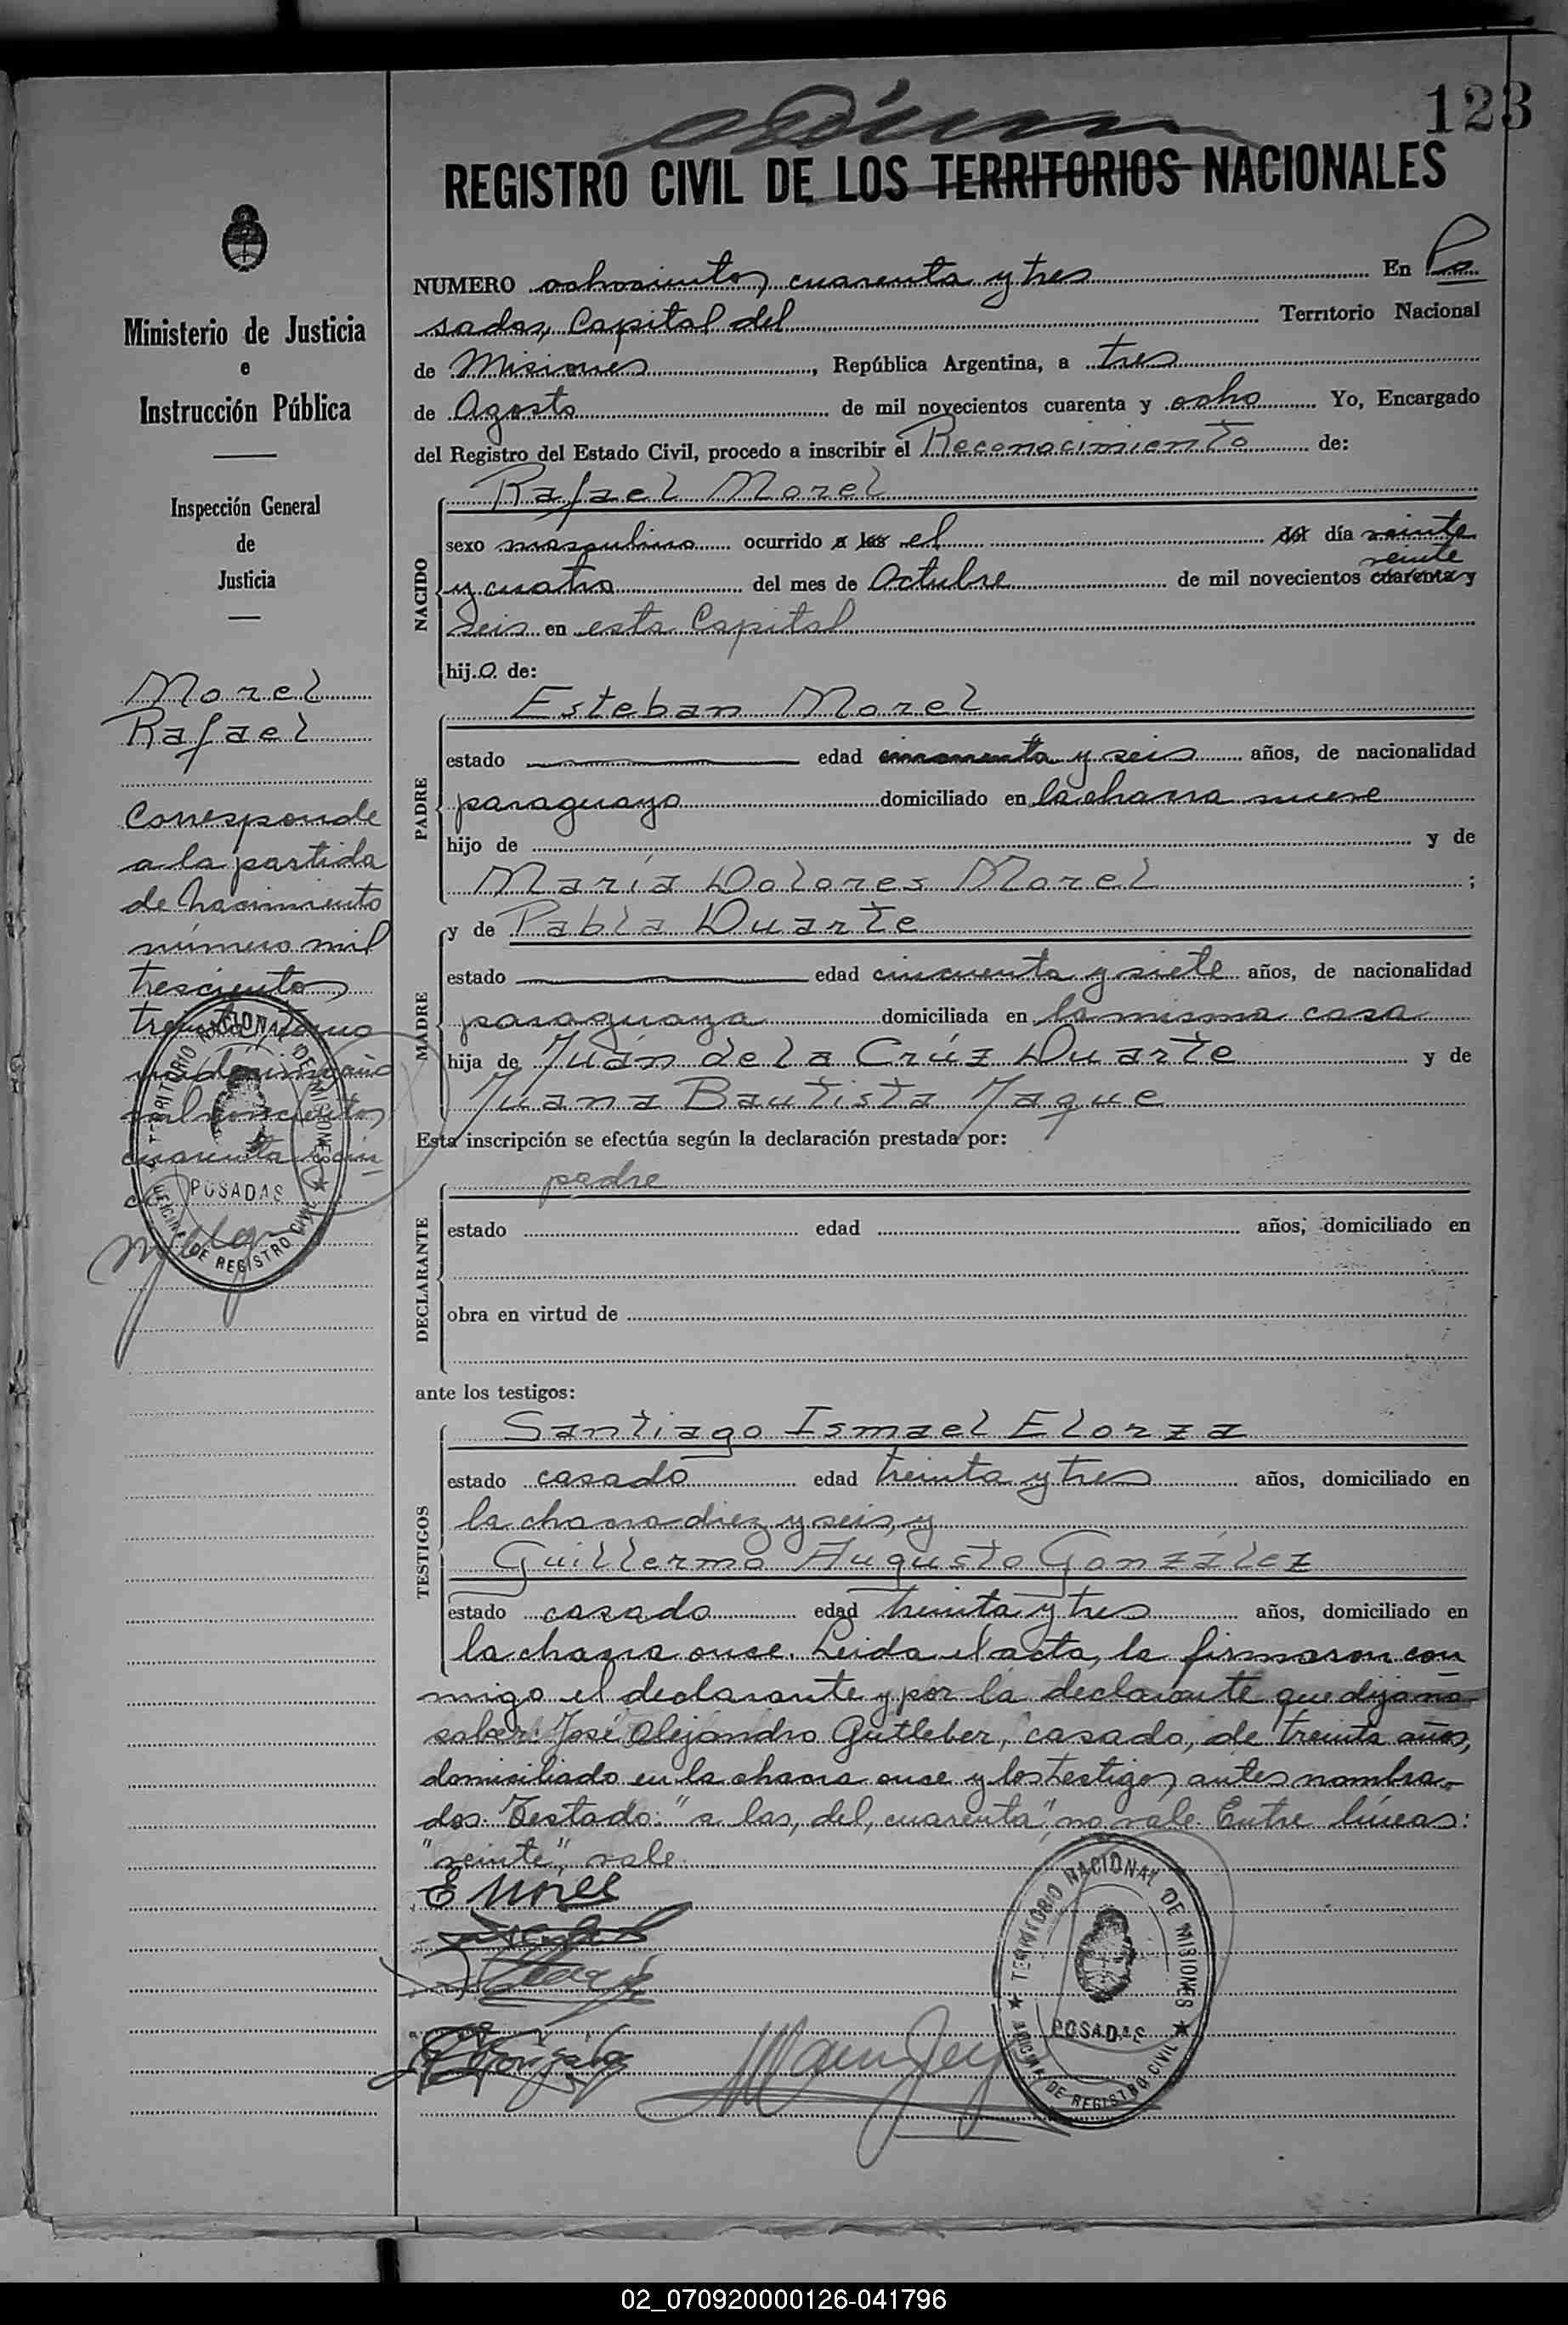 123
REGISTRO CIVIL DE LOS TERRITORIOS NACIONALES
Ministerio de Justicia
e
Instrucción Pública
Inspección General
de
Justicia
Morel
Rafael
Corresponde
a la partida
de nacimiento
número mil
trescientos
treinta y uno
cuarenta y cin
co
NUMERO ochocientos cuarenta y tres En Po
sadas, Capital del Territorio Nacional
de Misiones, República Argentina, a tres
de Agosto de mil novecientos cuarenta y ocho Yo, Encargado
del Registro del Estado Civil, procedo a inscribir el Reconocimiento de:
NACIDO
Rafael Morel
sexo masculino ocurrido a las el del día veinte
veinte
y cuatro del mes de Octubre de mil novecientos cuarenta y
seis en esta Capital
hijo de:
PADRE
Esteban Morel
estado edad cincuenta y seis años, de nacionalidad
paraguayo domiciliado en la chacra nueve
hijo de y de
María Dolores Morel;
MADRE
y de Pabla Duarte
estado edad cincuenta y siete años, de nacionalidad
paraguaya domiciliada en la misma casa
hija de Juan de la Crúz Duarte y de
Juana Bautista Jaque
Esta inscripción se efectúa según la declaración prestada por:
DECLARANTE
padre
estado edad años, domiciliado en
obra en virtud de
ante los testigos:
TESTIGOS
Santiago Ismael Elorza
estado casado edad treinta y tres años, domiciliado en
la chacra diez y seis, y
Guillermo Augusto González
estado casado edad treinta y tres años, domiciliado en
la chacra once. Leida el acta, la firmaron con
migo el declarante y por la declarante que dijo no
saber: José Alejandro Gutleber, casado, de treinta años,
domiciliado en la chacra once y los testigos antes nombra-
dos. Testado: "a las, del, cuarenta", no vale. Entre líneas:
"veinte", vale.
E Morel
TERRITORIO NACIONAL DE MISIONES
POSADAS
OFICINA DE REGISTRO CIVIL
TERRITORIO NACIONAL DE MISIONES
POSADAS
OFICINA DE REGISTRO CIVIL
02_070920000126-041796